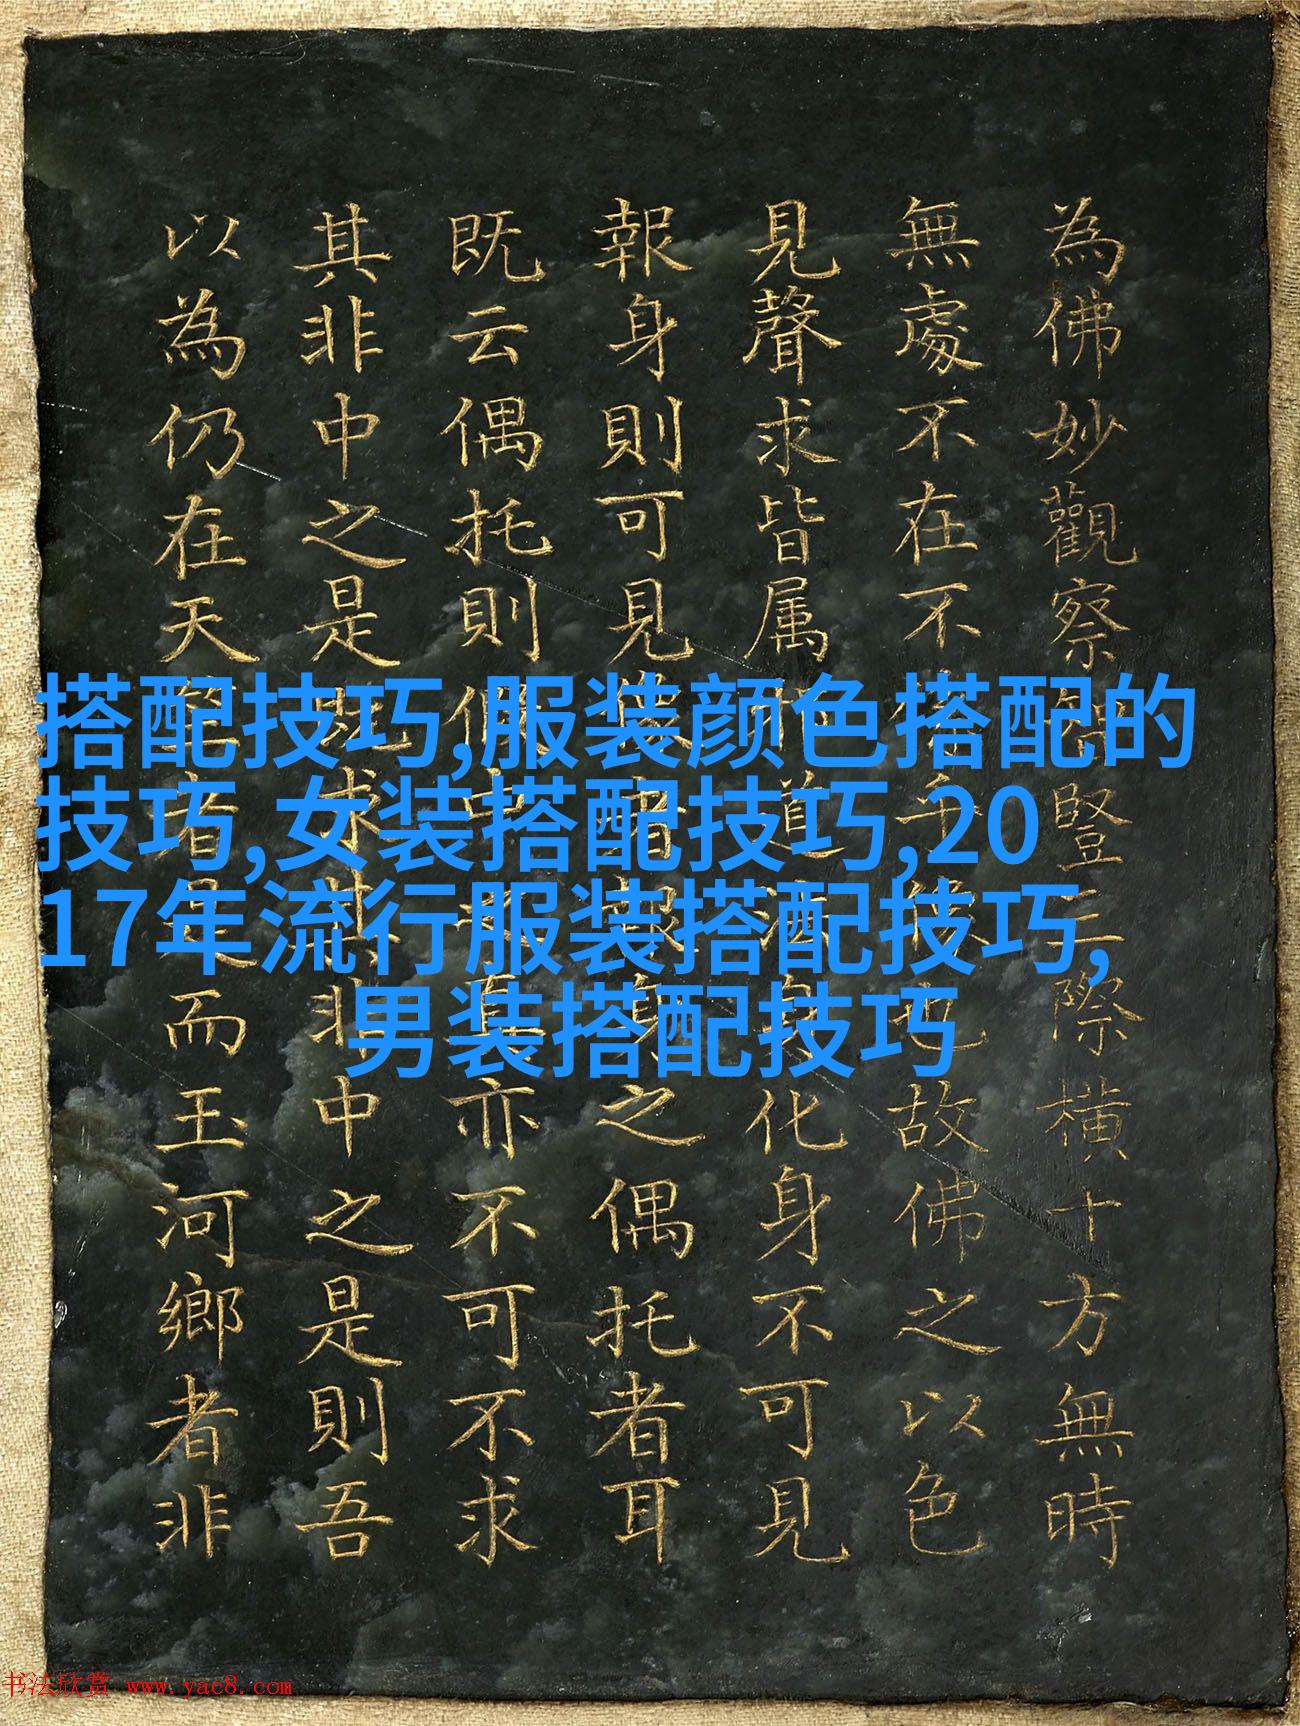 為佛妙觀察竪三際橫十方無時
無處不在不故佛之以色
見聲求皆属道身化身不可見
報身則可見報身之偶托者耳
既云偶托則假中之真亦不可不求
其非中之是既求其非中之是則吾
以為仍在天者是而玉河鄉者非
搭配技巧,服装颜色搭配的
技巧,女装搭配技巧,20
17年流行服装搭配技巧,
男装搭配技巧
书法欣赏 www.yac8.com